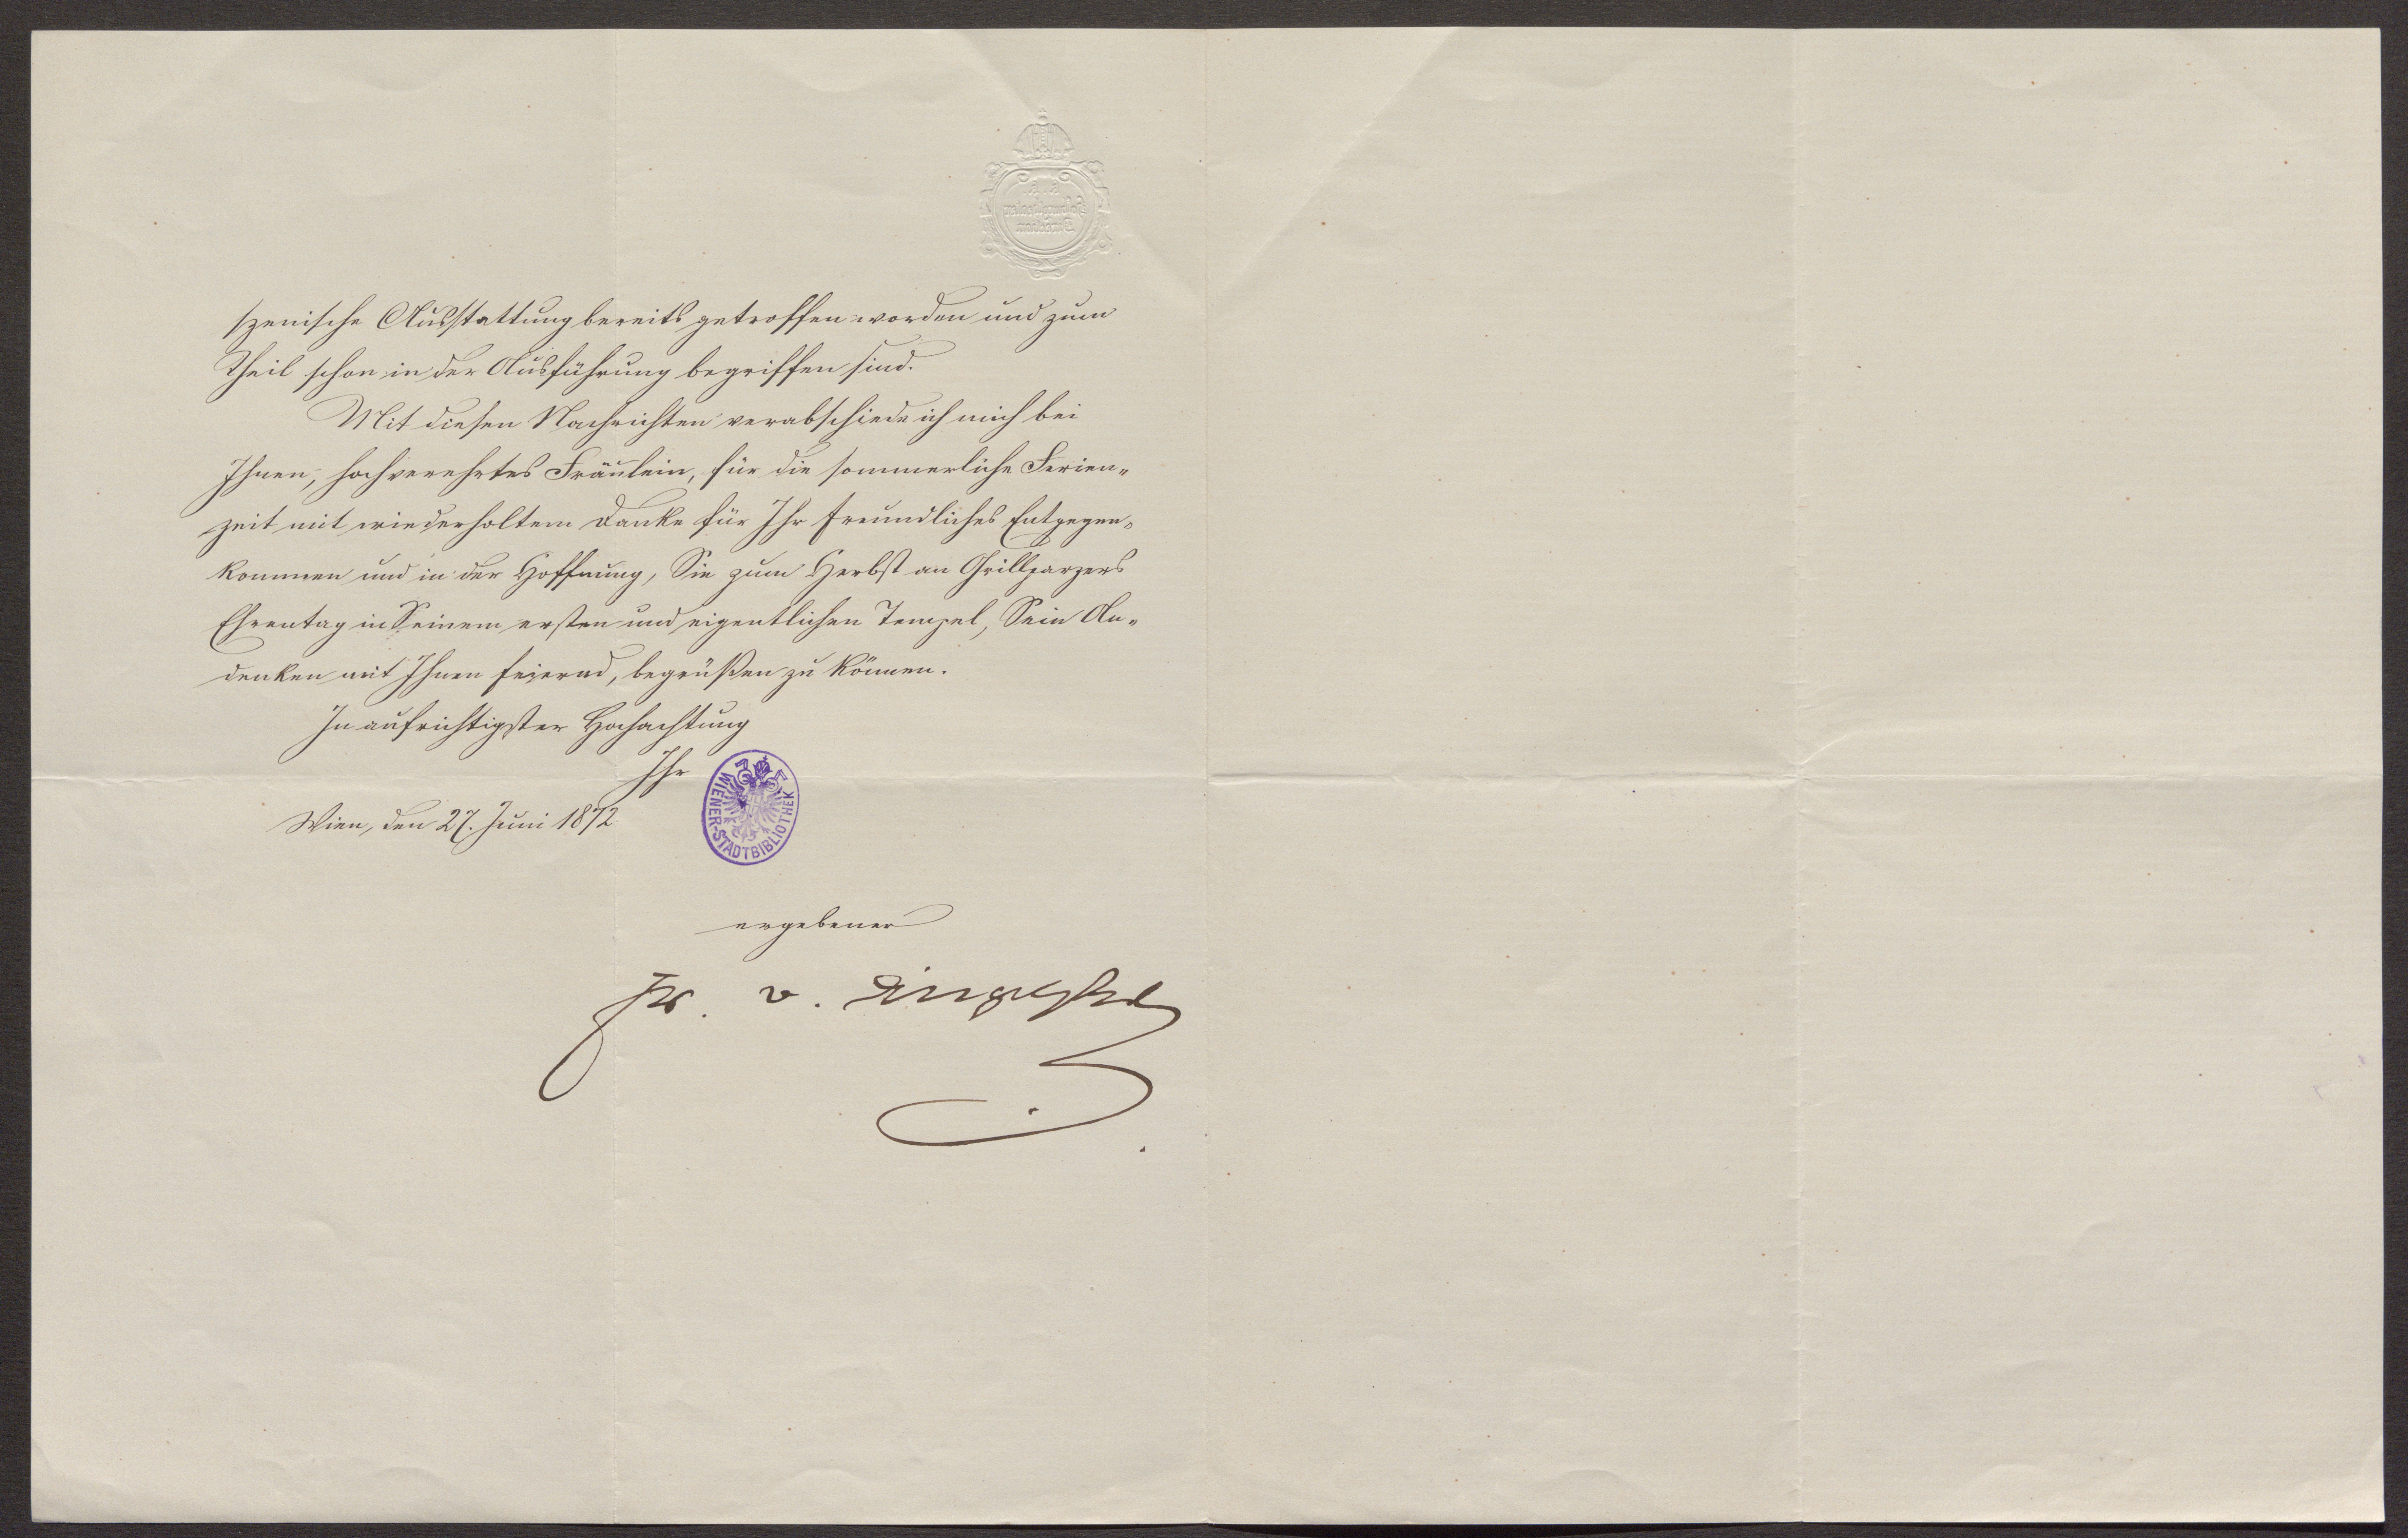 szenische Ausstattung bereits getroffen worden und zum
Theil schon in der Ausführung begriffen sind.
Mit diesen Nachrichten verabschiede ich mich bei
Ihnen, hochverehrtes Fräulein, für die sommerliche Ferien-
zeit mit wiederholtem Danke für Ihr freundliches Entgegen-
kommen und in der Hoffnung, Sie zum Herbst an Grillparzers
Ehrentag in Seinem ersten und eigentlichen Tempel, Sein An-
denken mit Ihnen feiernd, begrüßen zu können.
In aufrichtigster Hochachtung
Ihr
Wien, den 27. Juni 1872
WIENER-STADTBIBLIOTHEK
ergebener
Fr. v. Dingelstedt